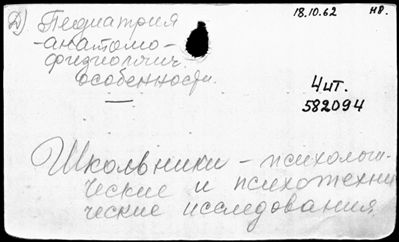 Д) Педиатрия
18.10.62 НВ.
-анатомо-
физиологич.
особенности.
Чит.
582094
Школьники - психологи-
ческие и психотехни
ческие исследования.